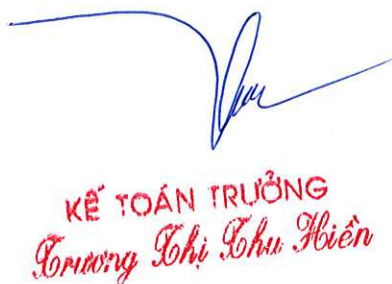 KẾ TOÁN TRƯỞNG
Trương Thị Thu Hiền